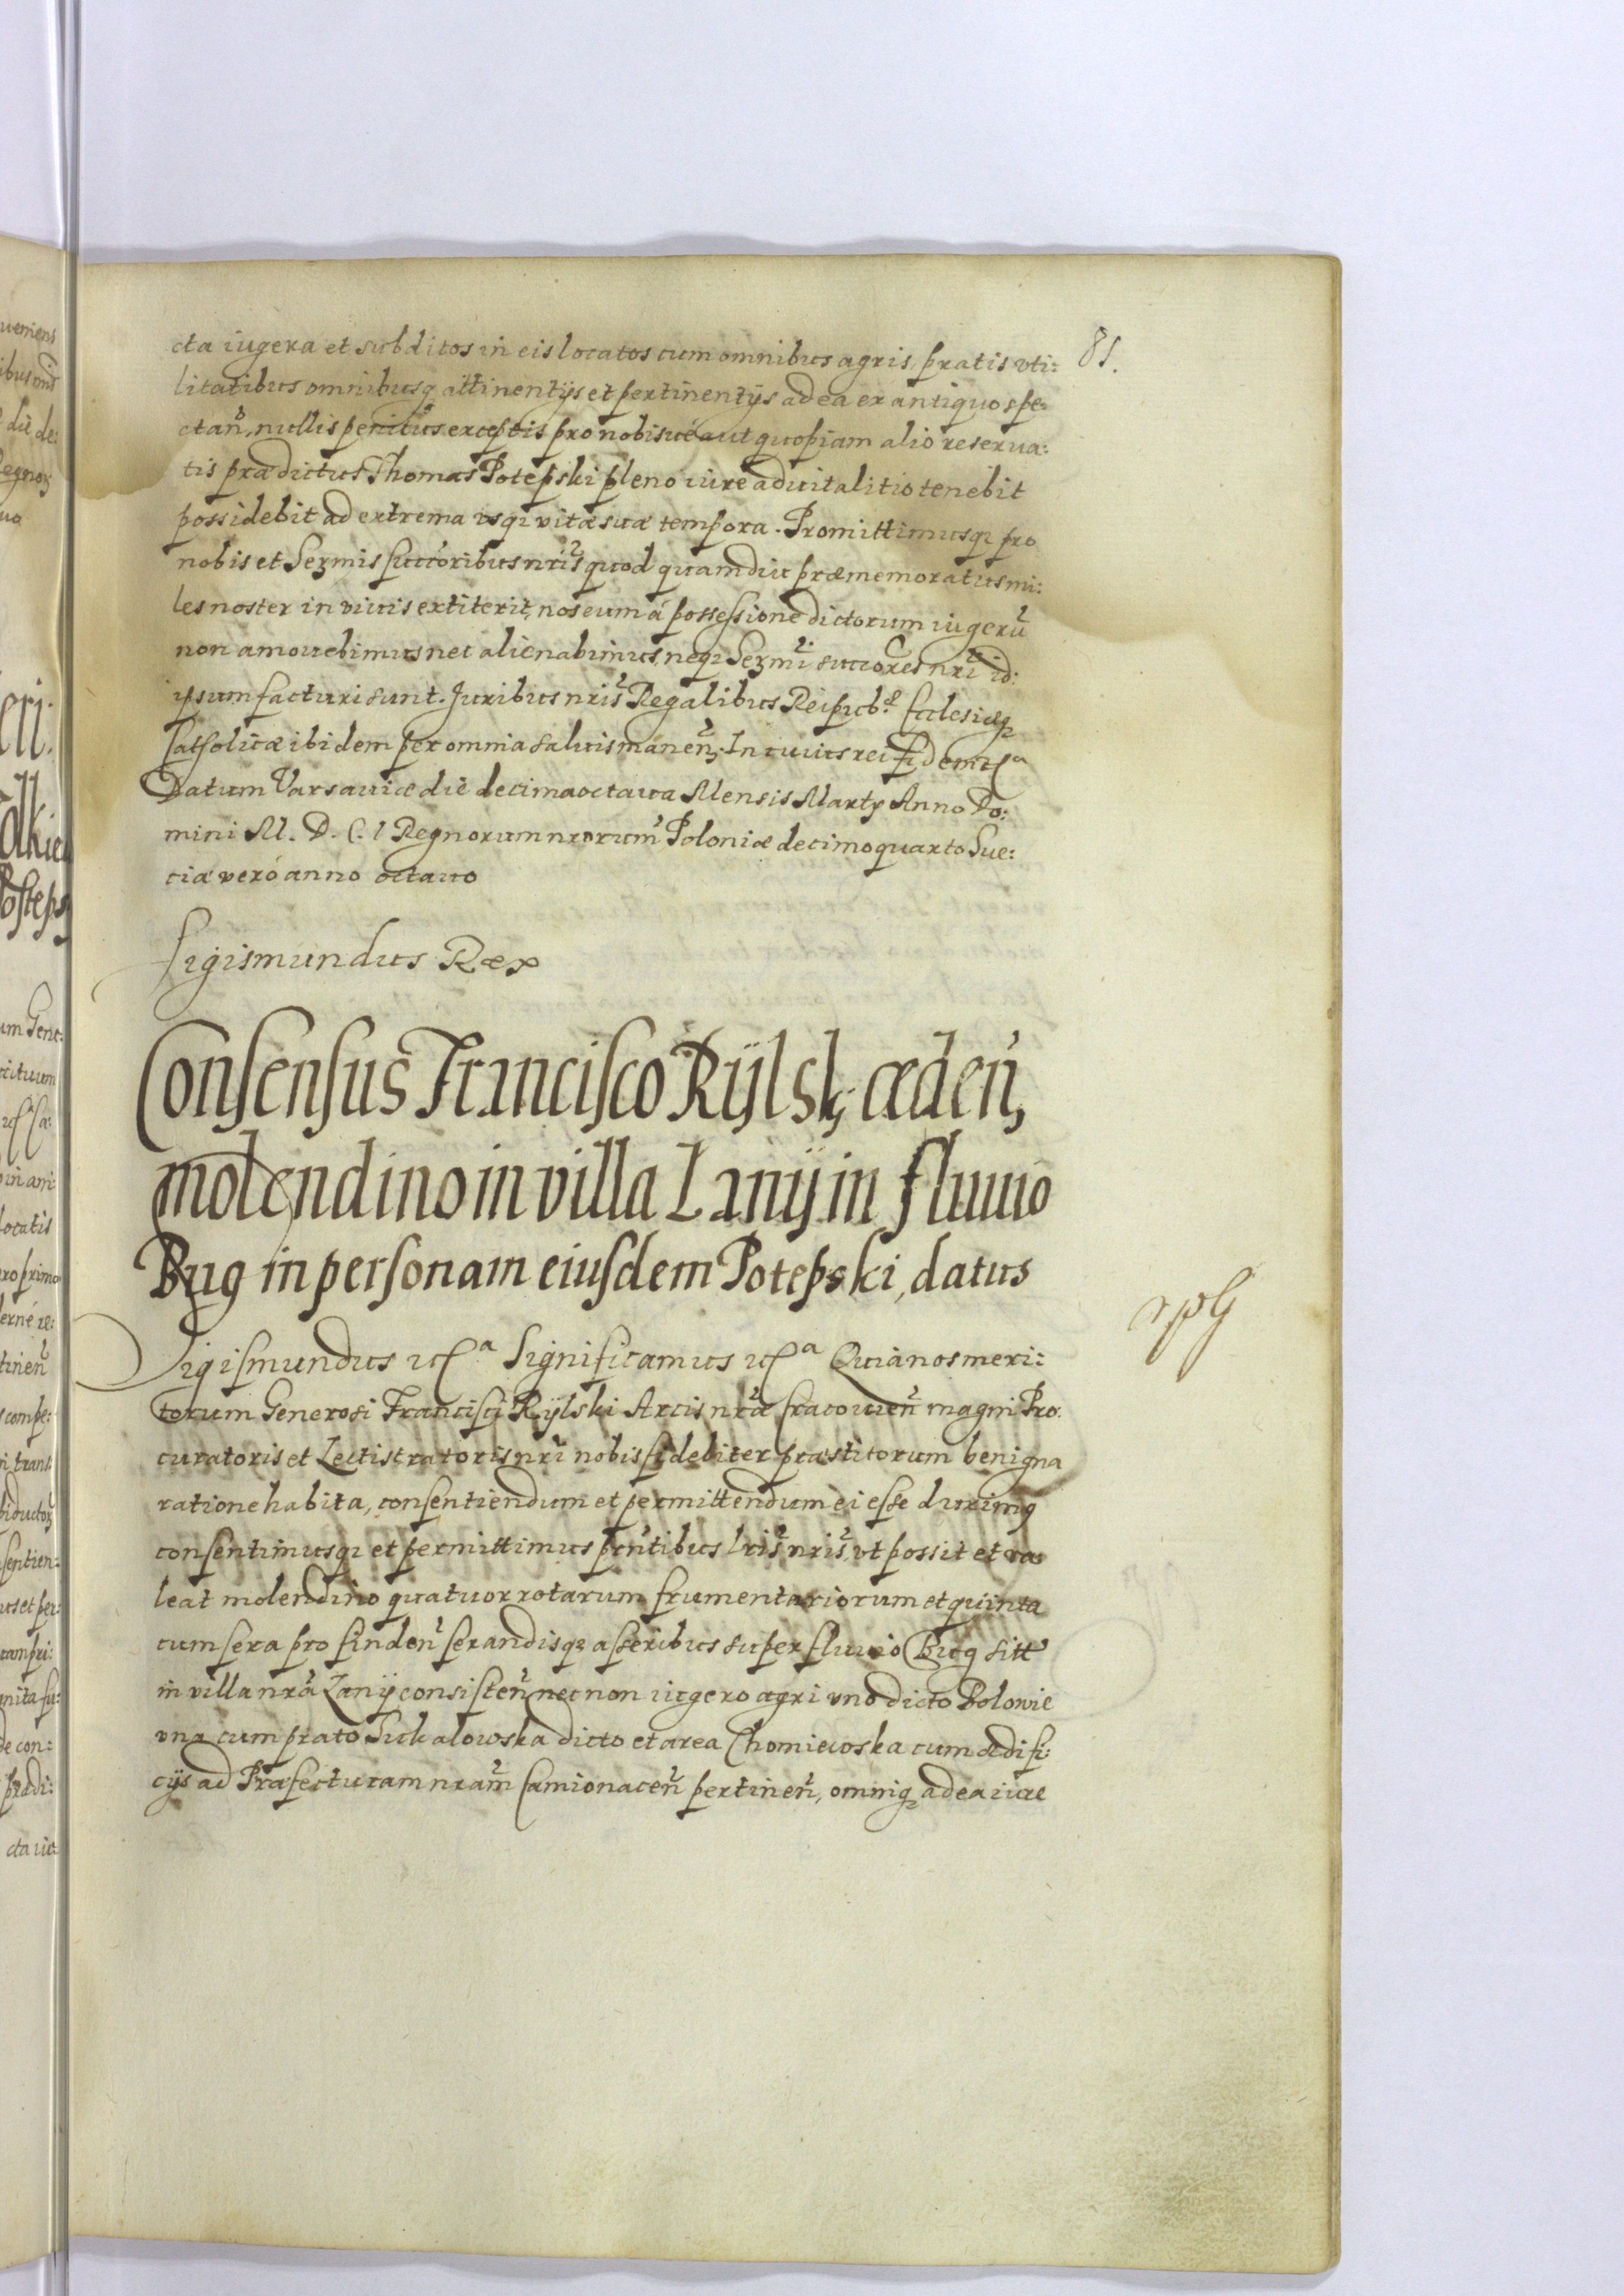 81.
cta iugera et subditos in eis locatos cum omnibus agris, pratis vti:
litatibus omnibusq attinentijs et pertinentijs ad ea ex antiquo spe:
ctañ, nullis penitus exceptis pro nobisue aut quopiam alio reserua:
tis prædictus Thomas Potepski pleno iure aduitalitio tenebit
possidebit ad extrema vsq; vitæ suæ tempora. Promittimusq; pro
nobis et Sermis succoribus nris quod quamdiu præmemoratus mi:
les noster in viuis extiterit, nos eum á possessione dictorum iugerũ
non amouebimus nec alienabimus, neq; Sermi succores nri id:
ipsum facturi sunt. Juribus nris Regalibus Reipub. Ecclesiæq
Catholicæ ibidem per omnia saluis maneñ. In cuius rei fidem etc
Datum Varsauiæ die decima octaua Mensis Martij Anno Do:
mini M. D. C. I Regnorum nrorum Poloniæ decimo quarto Sue:
ciæ veró anno octauo
Sigismundus Rex
Consensus Francisco Rÿlski cædeñ,
molendino in villa Lanÿ in fluuio
Bug in personam eiusdem Potepski, datus
Sigismundus etc.a Significamus etc.a Quia nos meri:
torum Generosi Francisci Rÿlski Arcis nræ Cracouieñ magni Pro:
curatoris et Lectistratoris nri nobis fidebiter præstitorum benigna
ratione habita, consentiendum et permittendum ei esse duximq
consentimusq; et permittimus pntibus lris nris, vt possit et va
leat molendino quatuor rotarum frumentariorum et quinta
cum sera pro findeñ serandisq; asseribus super fluuio Bug sitt
in villa nra Lanÿ consisteñ nec non iugero agri vno dicto Bolowie
vna cum prato Suchalowska dicto et area Chomiewska cum ædifi:
cijs ad Præfecturam nram Camionaceñ pertineñ, omniq; ad ea iure